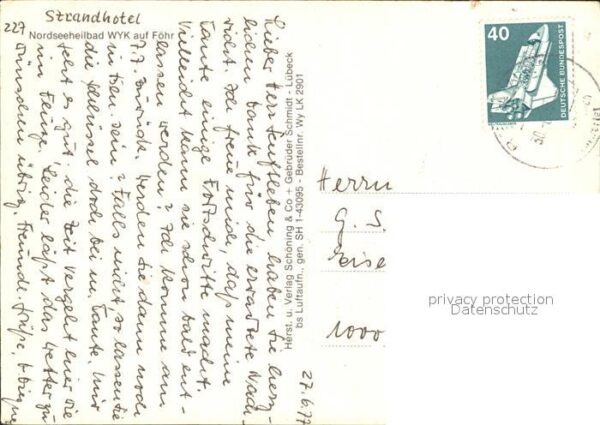 Strandhotel
227
Nordseeheilbad WYK auf Föhr
Lieber Herr haben Sie herz-
lichen Dank für die erwartete Nach-
richt. Ich freue mich, daß meine
Tante einige Fortschritte macht.
Vielleicht kann sie schon bald ent-
lassen werden? Ich komme am
7.7. zurück. Werden Sie dann noch
in sein? Falls nicht so lassen Sie
die Schlüssel doch bei m. Tante. Mir
geht es gut. Die Zeit vergeht hier wie
im Fluge. Leider läßt das Wetter zu
wünschen übrig. Freundl. Grüße, Ihre
27.6.77
Herst. u. Verlag Schöning & Co + Gebrüder Schmidt - Lübeck
bs Luftaufn., gen. SH 1-43095 - Bestellnr. Wy LK 2901
40
DEUTSCHE BUNDESPOST
Herrn
G. S.
1000
privacy protection
Datenschutz